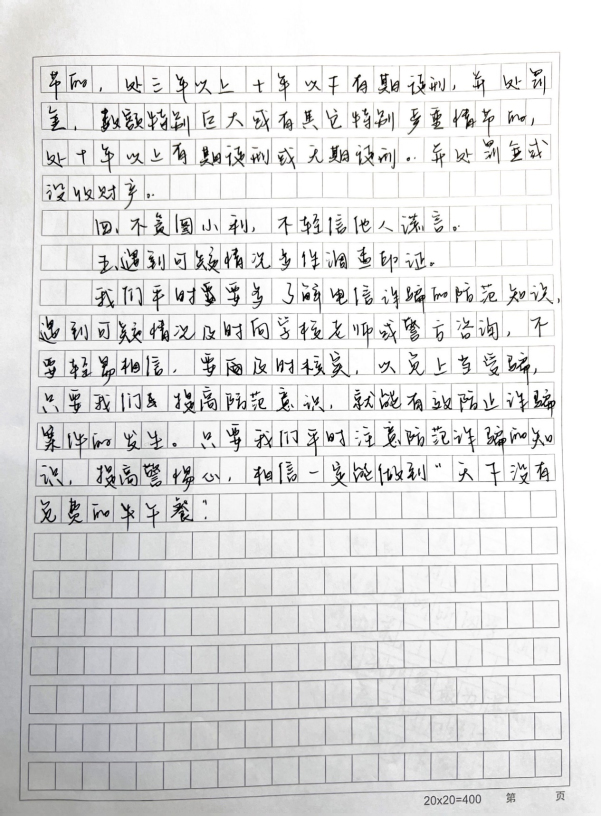 节的，处三年以上十年以下有期徒刑，并处罚
金，数额特别巨大或有其它特别严重情节的，
处十年以上有期徒刑或无期徒刑。并处罚金或
没收财产。
四、不贪图小利，不轻信他人谎言。
五、遇到可疑情况多作调查印证。
我们平时要多了解电信诈骗的防范知识，
遇到可疑情况及时向学校老师或警方咨询，不
要轻易相信，要及时核实，以免上当受骗，
只要我们提高防范意识，就能有效防止诈骗
案件的发生。只要我们平时注意防范诈骗的知
识，提高警惕心，相信一定能做到"天下没有
免费的午餐"
20x20=400 第 页